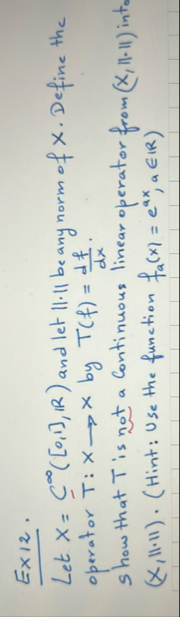 Ex12.
Let X = C^∞([0,1], ℝ) and let ||·|| be any norm of X. Define the
operator T: X → X by T(f) = df/dx.
Show that T is not a continuous linear operator from (X, ||·||) into
(X, ||·||). (Hint: Use the function f_a(x) = e^{ax}, a ∈ ℝ)